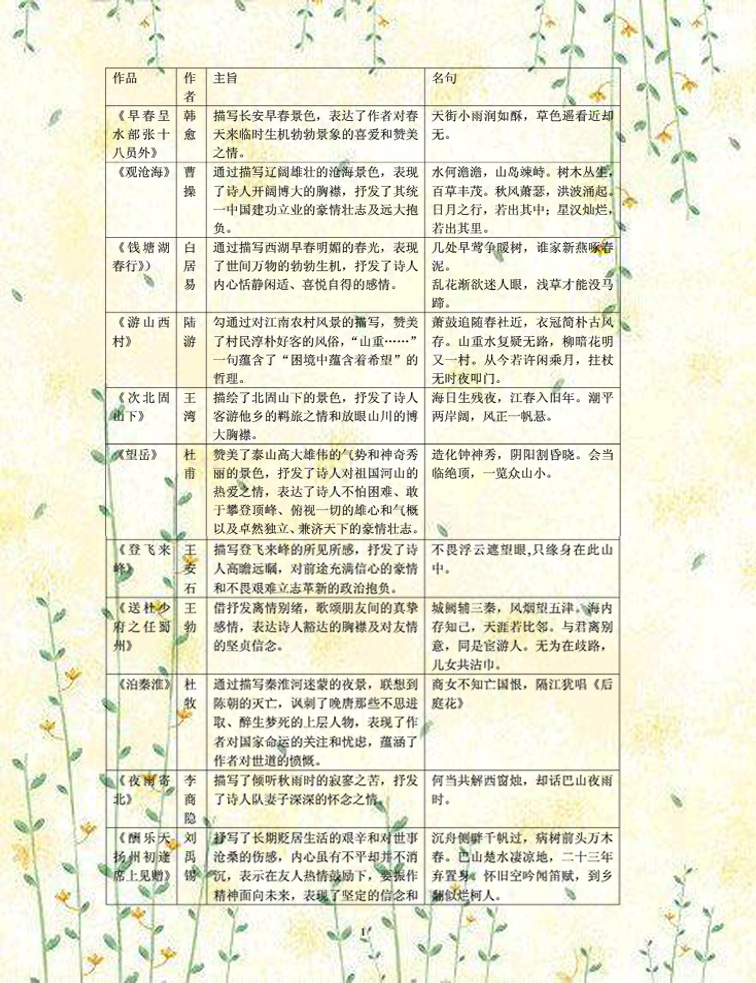 作品 作者 主旨 名句
《早春呈水部张十八员外》 韩愈 描写长安早春景色，表达了作者对春天来临时生机勃勃景象的喜爱和赞美之情。 天街小雨润如酥，草色遥看近却无。
《观沧海》 曹操 通过描写辽阔雄壮的沧海景色，表现了诗人开阔博大的胸襟，抒发了其统一中国建功立业的豪情壮志及远大抱负。 水何澹澹，山岛竦峙。树木丛生，百草丰茂。秋风萧瑟，洪波涌起。日月之行，若出其中；星汉灿烂，若出其里。
《钱塘湖春行》） 白居易 通过描写西湖早春明媚的春光，表现了世间万物的勃勃生机，抒发了诗人内心恬静闲适、喜悦自得的感情。 几处早莺争暖树，谁家新燕啄春泥。乱花渐欲迷人眼，浅草才能没马蹄。
《游山西村》 陆游 勾通过对江南农村风景的描写，赞美了村民淳朴好客的风俗，“山重……”一句蕴含了“困境中蕴含着希望”的哲理。 萧鼓追随春社近，衣冠简朴古风存。山重水复疑无路，柳暗花明又一村。从今若许闲乘月，拄杖无时夜叩门。
《次北固山下》 王湾 描绘了北固山下的景色，抒发了诗人客游他乡的羁旅之情和放眼山川的博大胸襟。 海日生残夜，江春入旧年。潮平两岸阔，风正一帆悬。
《望岳》 杜甫 赞美了泰山高大雄伟的气势和神奇秀丽的景色，抒发了诗人对祖国河山的热爱之情，表达了诗人不怕困难、敢于攀登顶峰、俯视一切的雄心和气概以及卓然独立、兼济天下的豪情壮志。 造化钟神秀，阴阳割昏晓。会当临绝顶，一览众山小。
《登飞来峰》 王安石 描写登飞来峰的所见所感，抒发了诗人高瞻远瞩，对前途充满信心的豪情和不畏艰难立志革新的政治抱负。 不畏浮云遮望眼,只缘身在此山中。
《送杜少府之任蜀州》 王勃 借抒发离情别绪，歌颂朋友间的真挚感情，表达诗人豁达的胸襟及对友情的坚贞信念。 城阙辅三秦，风烟望五津。海内存知己，天涯若比邻。与君离别意，同是宦游人。无为在歧路，儿女共沾巾。
《泊秦淮》 杜牧 通过描写秦淮河迷蒙的夜景，联想到陈朝的灭亡，讽刺了晚唐那些不思进取、醉生梦死的上层人物，表现了作者对国家命运的关注和忧虑，蕴涵了作者对世道的愤慨。 商女不知亡国恨，隔江犹唱《后庭花》
《夜雨寄北》 李商隐 描写了倾听秋雨时的寂寥之苦，抒发了诗人队妻子深深的怀念之情。 何当共解西窗烛，却话巴山夜雨时。
《酬乐天扬州初逢席上见赠》 刘禹锡 抒写了长期贬居生活的艰辛和对世事沧桑的伤感，内心虽有不平却并不消沉，表示在友人热情鼓励下，要振作精神面向未来，表现了坚定的信念和 沉舟侧畔千帆过，病树前头万木春。巴山楚水凄凉地，二十三年弃置身。怀旧空吟闻笛赋，到乡翻似烂柯人。
1